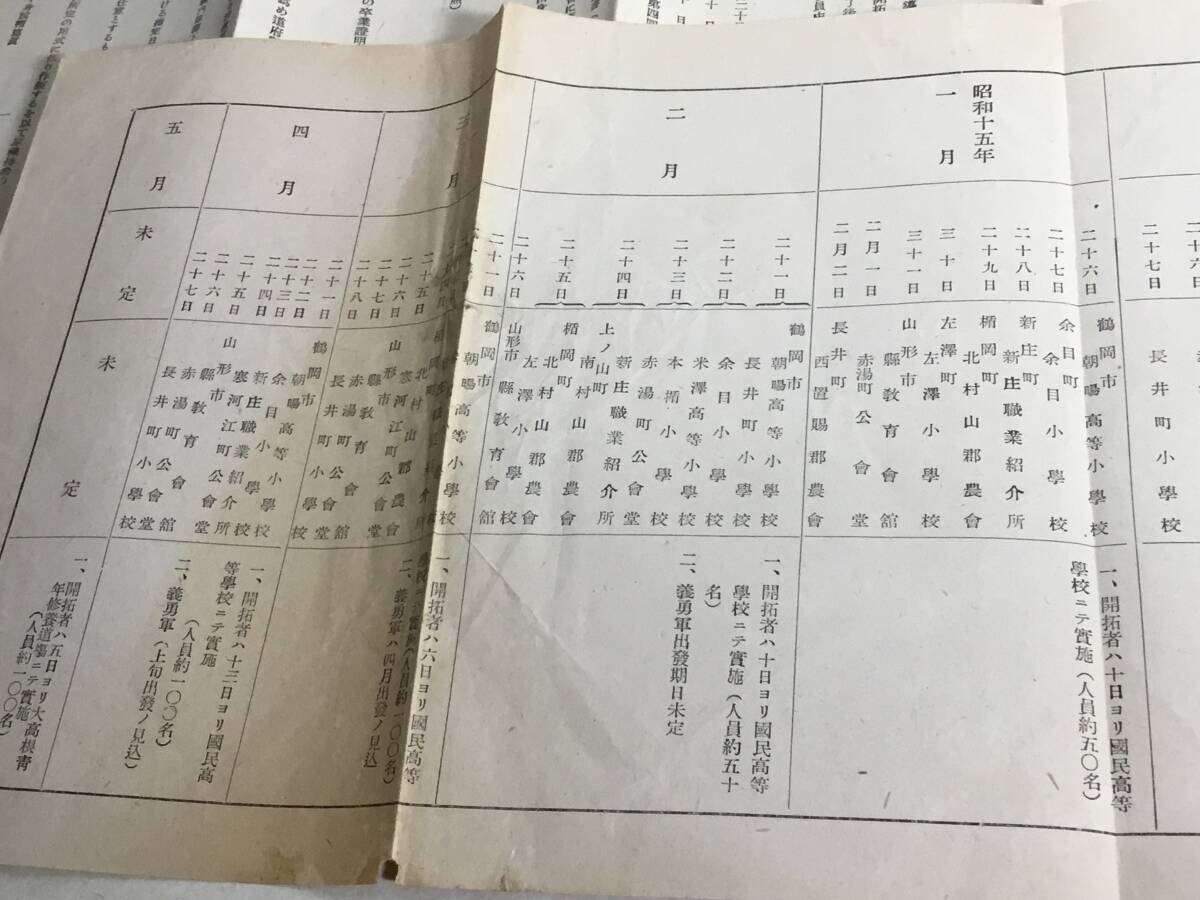 二十七日
長井町小學校
昭和十五年
一月
二十六日
鶴岡市 朝暘高等小學校
二十七日
余目町 余目小學校
二十八日
新庄町 新庄職業紹介所
二十九日
楯岡町 北村山郡農會
三十日
左澤町 左澤小學校
三十一日
山形市 縣教育會館
二月一日
赤湯町公會堂
二月二日
長井町 西置賜郡農會
一、開拓者ハ十日ヨリ國民高等
學校ニテ實施(人員約五〇名)
二月
二十一日
鶴岡市 朝暘高等小學校
長井町小學校
二十二日
余目小學校
米澤高等小學校
二十三日
本楯小學校
赤湯町公會堂
二十四日
新庄職業紹介所
上ノ山町 南村山郡農會
二十五日
楯岡町 北村山郡農會
左澤小學校
二十六日
山形市 縣教育會館
一、開拓者ハ十日ヨリ國民高等
學校ニテ實施(人員約五十
名)
二、義勇軍出發期日未定
三月
二十一日
鶴岡市 朝暘高等小學校
二十五日
北村山郡農會
二十六日
寒河江町公會堂
二十七日
山形市 縣教育會館
二十八日
赤湯町公會堂
長井町小學校
一、開拓者ハ六日ヨリ國民高等
學校ニテ實施(人員約一〇〇名)
二、義勇軍ハ四月出發ノ見込
四月
二十一日
鶴岡市 朝暘高等小學校
二十二日
余目小學校
二十三日
新庄職業紹介所
二十四日
寒河江町公會堂
二十五日
山形市 縣教育會館
二十六日
赤湯町公會堂
二十七日
長井町小學校
一、開拓者ハ十三日ヨリ國民高
等學校ニテ實施
(人員約一〇〇名)
二、義勇軍(上旬出發ノ見込)
五月
未定
未定
一、開拓者ハ五日ヨリ大高根靑
年修養道場ニテ實施
(人員約一〇〇名)